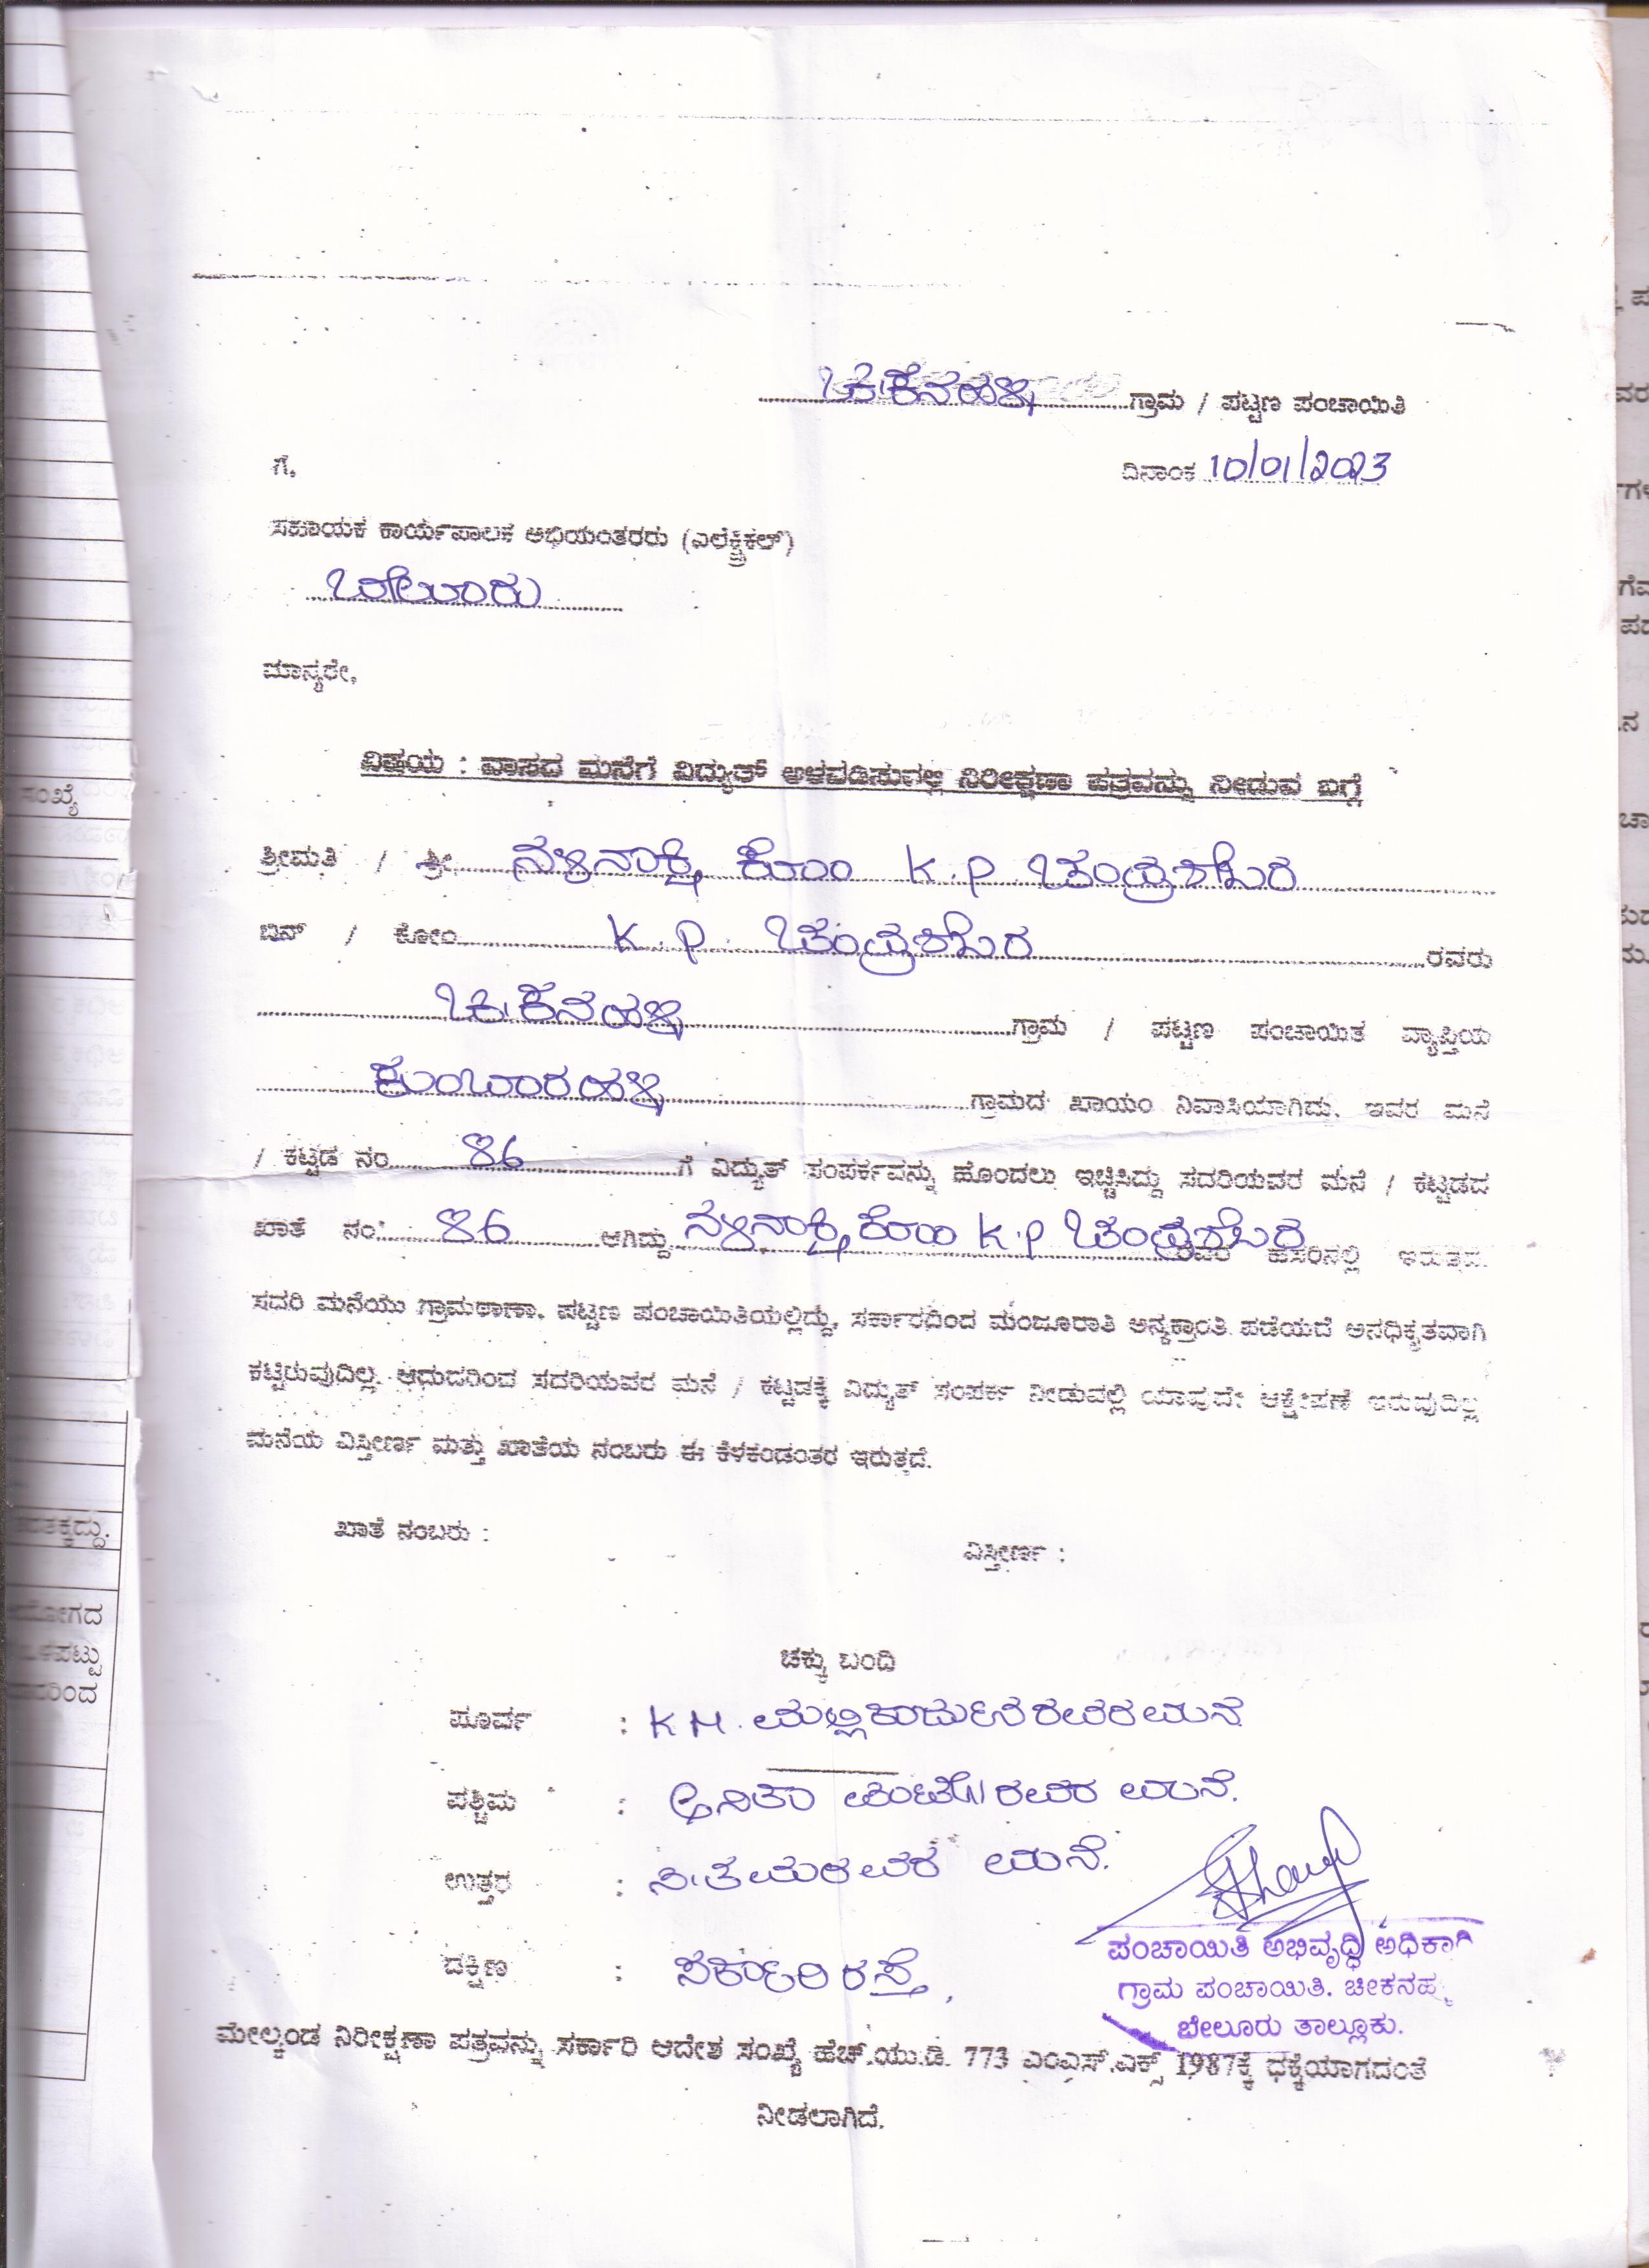 ಚೀಕನಹಳ್ಳಿ ಗ್ರಾಮ / ಪಟ್ಟಣ ಪಂಚಾಯಿತಿ
ಗೆ,
ದಿನಾಂಕ 10/01/2023
ಸಹಾಯಕ ಕಾರ್ಯಪಾಲಕ ಅಭಿಯಂತರರು (ಎಲೆಕ್ಟ್ರಿಕಲ್)
ಬೇಲೂರು
ಮಾನ್ಯರೇ,
ವಿಷಯ : ವಾಸದ ಮನೆಗೆ ವಿದ್ಯುತ್ ಅಳವಡಿಸುವಲ್ಲಿ ನಿರೀಕ್ಷಣಾ ಪತ್ರವನ್ನು ನೀಡುವ ಬಗ್ಗೆ
ಶ್ರೀಮತಿ / ಶ್ರೀ ನಳಿನಾಕ್ಷಿ ಕೋಂ K.P ಚಂದ್ರಶೇಖರ
ಬಿನ್ / ಕೋಂ K.P. ಚಂದ್ರಶೇಖರ ರವರು
ಚೀಕನಹಳ್ಳಿ ಗ್ರಾಮ / ಪಟ್ಟಣ ಪಂಚಾಯಿತ ವ್ಯಾಪ್ತಿಯ
ಕುಂಬಾರಹಳ್ಳಿ ಗ್ರಾಮದ ಖಾಯಂ ನಿವಾಸಿಯಾಗಿದ್ದು, ಇವರ ಮನೆ
/ ಕಟ್ಟಡ ನಂ 86 ಗೆ ವಿದ್ಯುತ್ ಸಂಪರ್ಕವನ್ನು ಹೊಂದಲು ಇಚ್ಚಿಸಿದ್ದು ಸದರಿಯವರ ಮನೆ / ಕಟ್ಟಡದ
ಖಾತೆ ನಂ 86 ಆಗಿದ್ದು ನಳಿನಾಕ್ಷಿ ಕೋಂ K.P ಚಂದ್ರಶೇಖರ ರವರ ಹೆಸರಿನಲ್ಲಿ ಇರುತ್ತದೆ.
ಸದರಿ ಮನೆಯು ಗ್ರಾಮಠಾಣಾ, ಪಟ್ಟಣ ಪಂಚಾಯಿತಿಯಲ್ಲಿದ್ದು, ಸರ್ಕಾರದಿಂದ ಮಂಜೂರಾತಿ ಅನ್ಯಕ್ರಾಂತಿ ಪಡೆಯದೆ ಅನಧಿಕೃತವಾಗಿ
ಕಟ್ಟಿರುವುದಿಲ್ಲ. ಆದುದರಿಂದ ಸದರಿಯವರ ಮನೆ / ಕಟ್ಟಡಕ್ಕೆ ವಿದ್ಯುತ್ ಸಂಪರ್ಕ ನೀಡುವಲ್ಲಿ ಯಾವುದೇ ಆಕ್ಷೇಪಣೆ ಇರುವುದಿಲ್ಲ
ಮನೆಯ ವಿಸ್ತೀರ್ಣ ಮತ್ತು ಖಾತೆಯ ನಂಬರು ಈ ಕೆಳಕಂಡಂತರ ಇರುತ್ತದೆ.
ಖಾತೆ ನಂಬರು :
ವಿಸ್ತೀರ್ಣ :
ಚಕ್ಕು ಬಂದಿ
ಪೂರ್ವ : K M. ಮಲ್ಲಿಕಾರ್ಜುನ ರವರ ಮನೆ
ಪಶ್ಚಿಮ : ರವರ ಮನೆ.
ಉತ್ತರ : ರವರ ಮನೆ.
ದಕ್ಷಿಣ : ಸರ್ಕಾರಿ ರಸ್ತೆ,
ಪಂಚಾಯಿತಿ ಅಭಿವೃದ್ಧಿ ಅಧಿಕಾರಿ
ಗ್ರಾಮ ಪಂಚಾಯಿತಿ. ಚೀಕನಹಳ್ಳಿ
ಬೇಲೂರು ತಾಲ್ಲೂಕು.
ಮೇಲ್ಕಂಡ ನಿರೀಕ್ಷಣಾ ಪತ್ರವನ್ನು ಸರ್ಕಾರಿ ಆದೇಶ ಸಂಖ್ಯೆ ಹೆಚ್.ಯು.ಡಿ. 773 ಎಂಎಸ್.ಎಕ್ಸ್ 1987ಕ್ಕೆ ಧಕ್ಕೆಯಾಗದಂತೆ
ನೀಡಲಾಗಿದೆ.